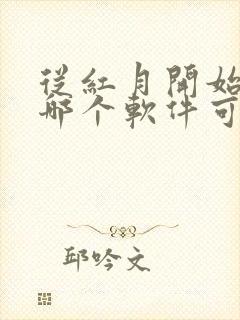 從紅月開始
哪个軟件可
邱吟文